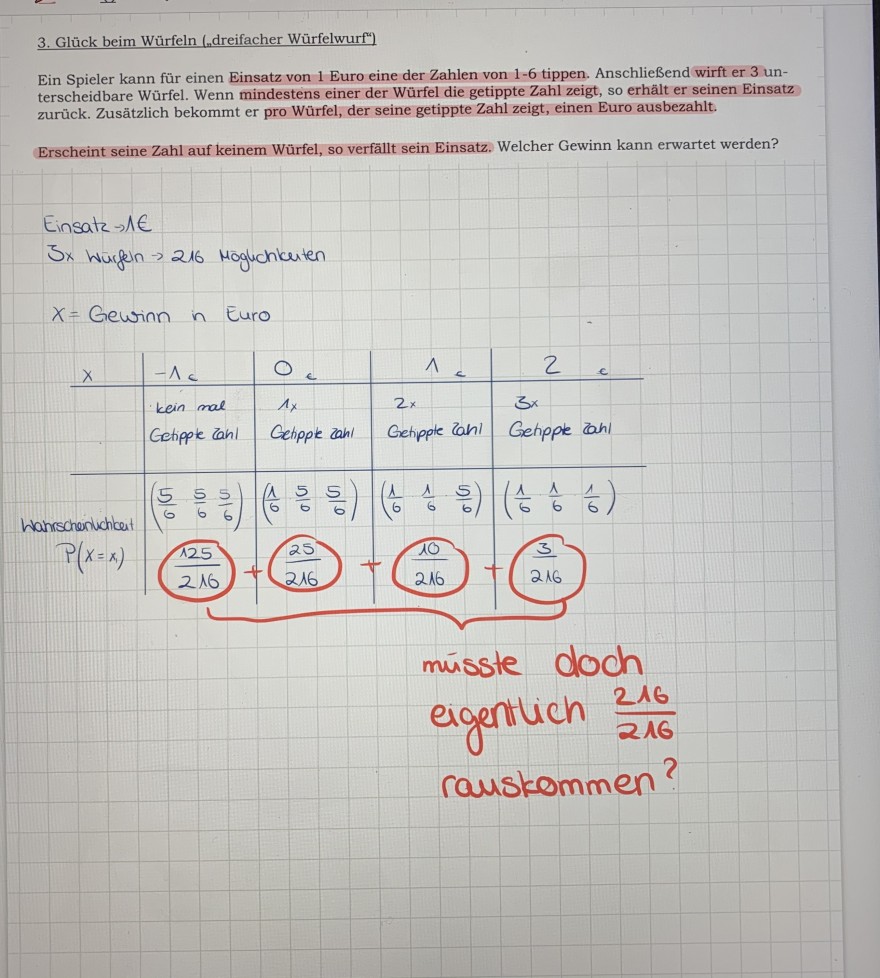 3. Glück beim Würfeln („dreifacher Würfelwurf“)
Ein Spieler kann für einen Einsatz von 1 Euro eine der Zahlen von 1-6 tippen. Anschließend wirft er 3 un-
terscheidbare Würfel. Wenn mindestens einer der Würfel die getippte Zahl zeigt, so erhält er seinen Einsatz
zurück. Zusätzlich bekommt er pro Würfel, der seine getippte Zahl zeigt, einen Euro ausbezahlt.
Erscheint seine Zahl auf keinem Würfel, so verfällt sein Einsatz. Welcher Gewinn kann erwartet werden?
Einsatz → 1€
3x Würfeln → 216 Möglichkeiten
X = Gewinn in Euro
X -1 € 0 € 1 € 2 €
kein mal 1x 2x 3x
Getippte Zahl Getippte Zahl Getippte Zahl Getippte Zahl
(5/6 5/6 5/6) (1/6 5/6 5/6) (1/6 1/6 5/6) (1/6 1/6 1/6)
Wahrscheinlichkeit
P(X=x) 125/216 + 25/216 + 10/216 + 3/216
müsste doch
eigentlich 216/216
rauskommen?